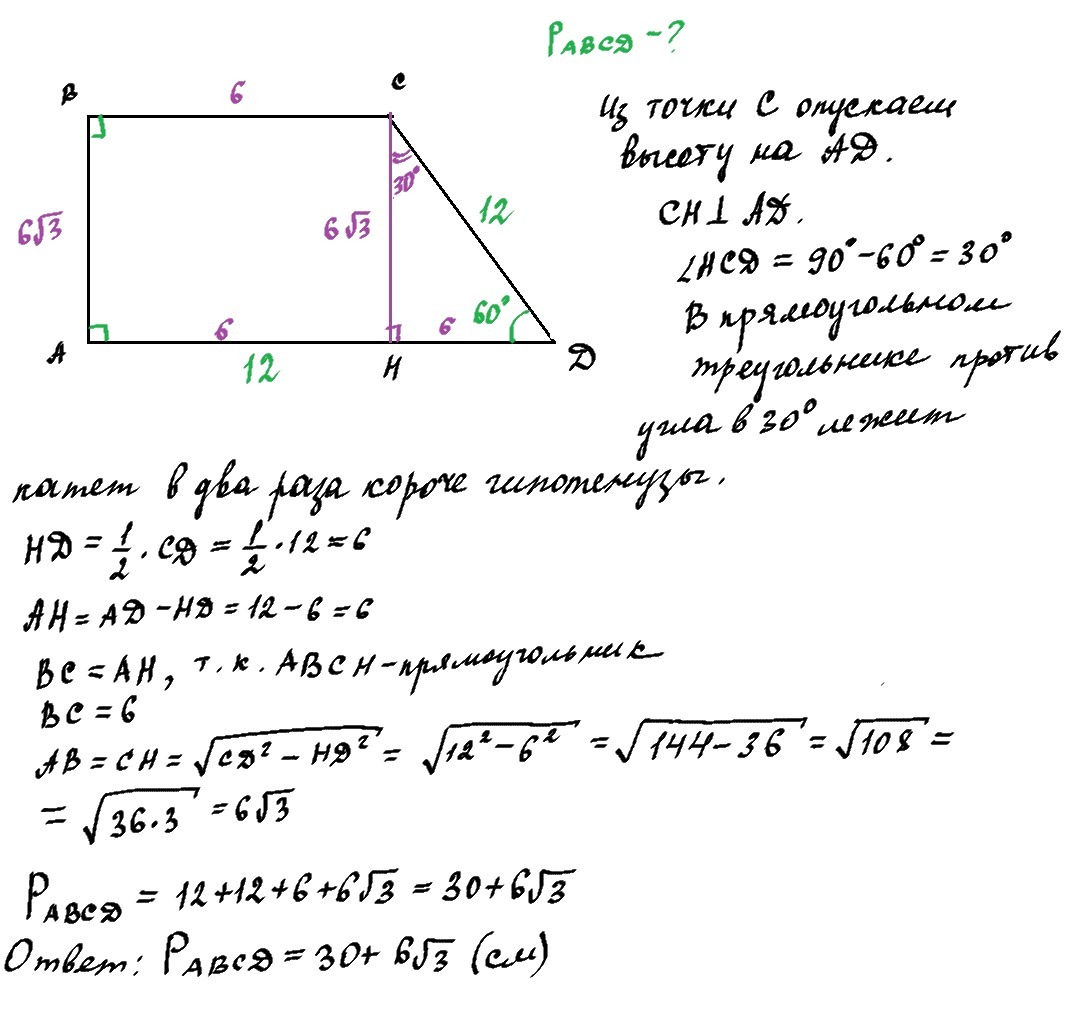 P_ABCD - ?
B
6
C
Из точки С опускаем
высоту на AD.
30°
6√3
6√3
12
CH ⊥ AD.
∠HCD = 90° - 60° = 30°
В прямоугольном
60°
6
6
A
12
H
D
треугольнике против
угла в 30° лежит
катет в два раза короче гипотенузы.
HD = 1/2 · CD = 1/2 · 12 = 6
AH = AD - HD = 12 - 6 = 6
BC = AH, т. к. ABCH - прямоугольник
BC = 6
AB = CH = √(CD² - HD²) = √(12² - 6²) = √(144 - 36) = √108 =
= √(36 · 3) = 6√3
P_ABCD = 12 + 12 + 6 + 6√3 = 30 + 6√3
Ответ: P_ABCD = 30 + 6√3 (см)